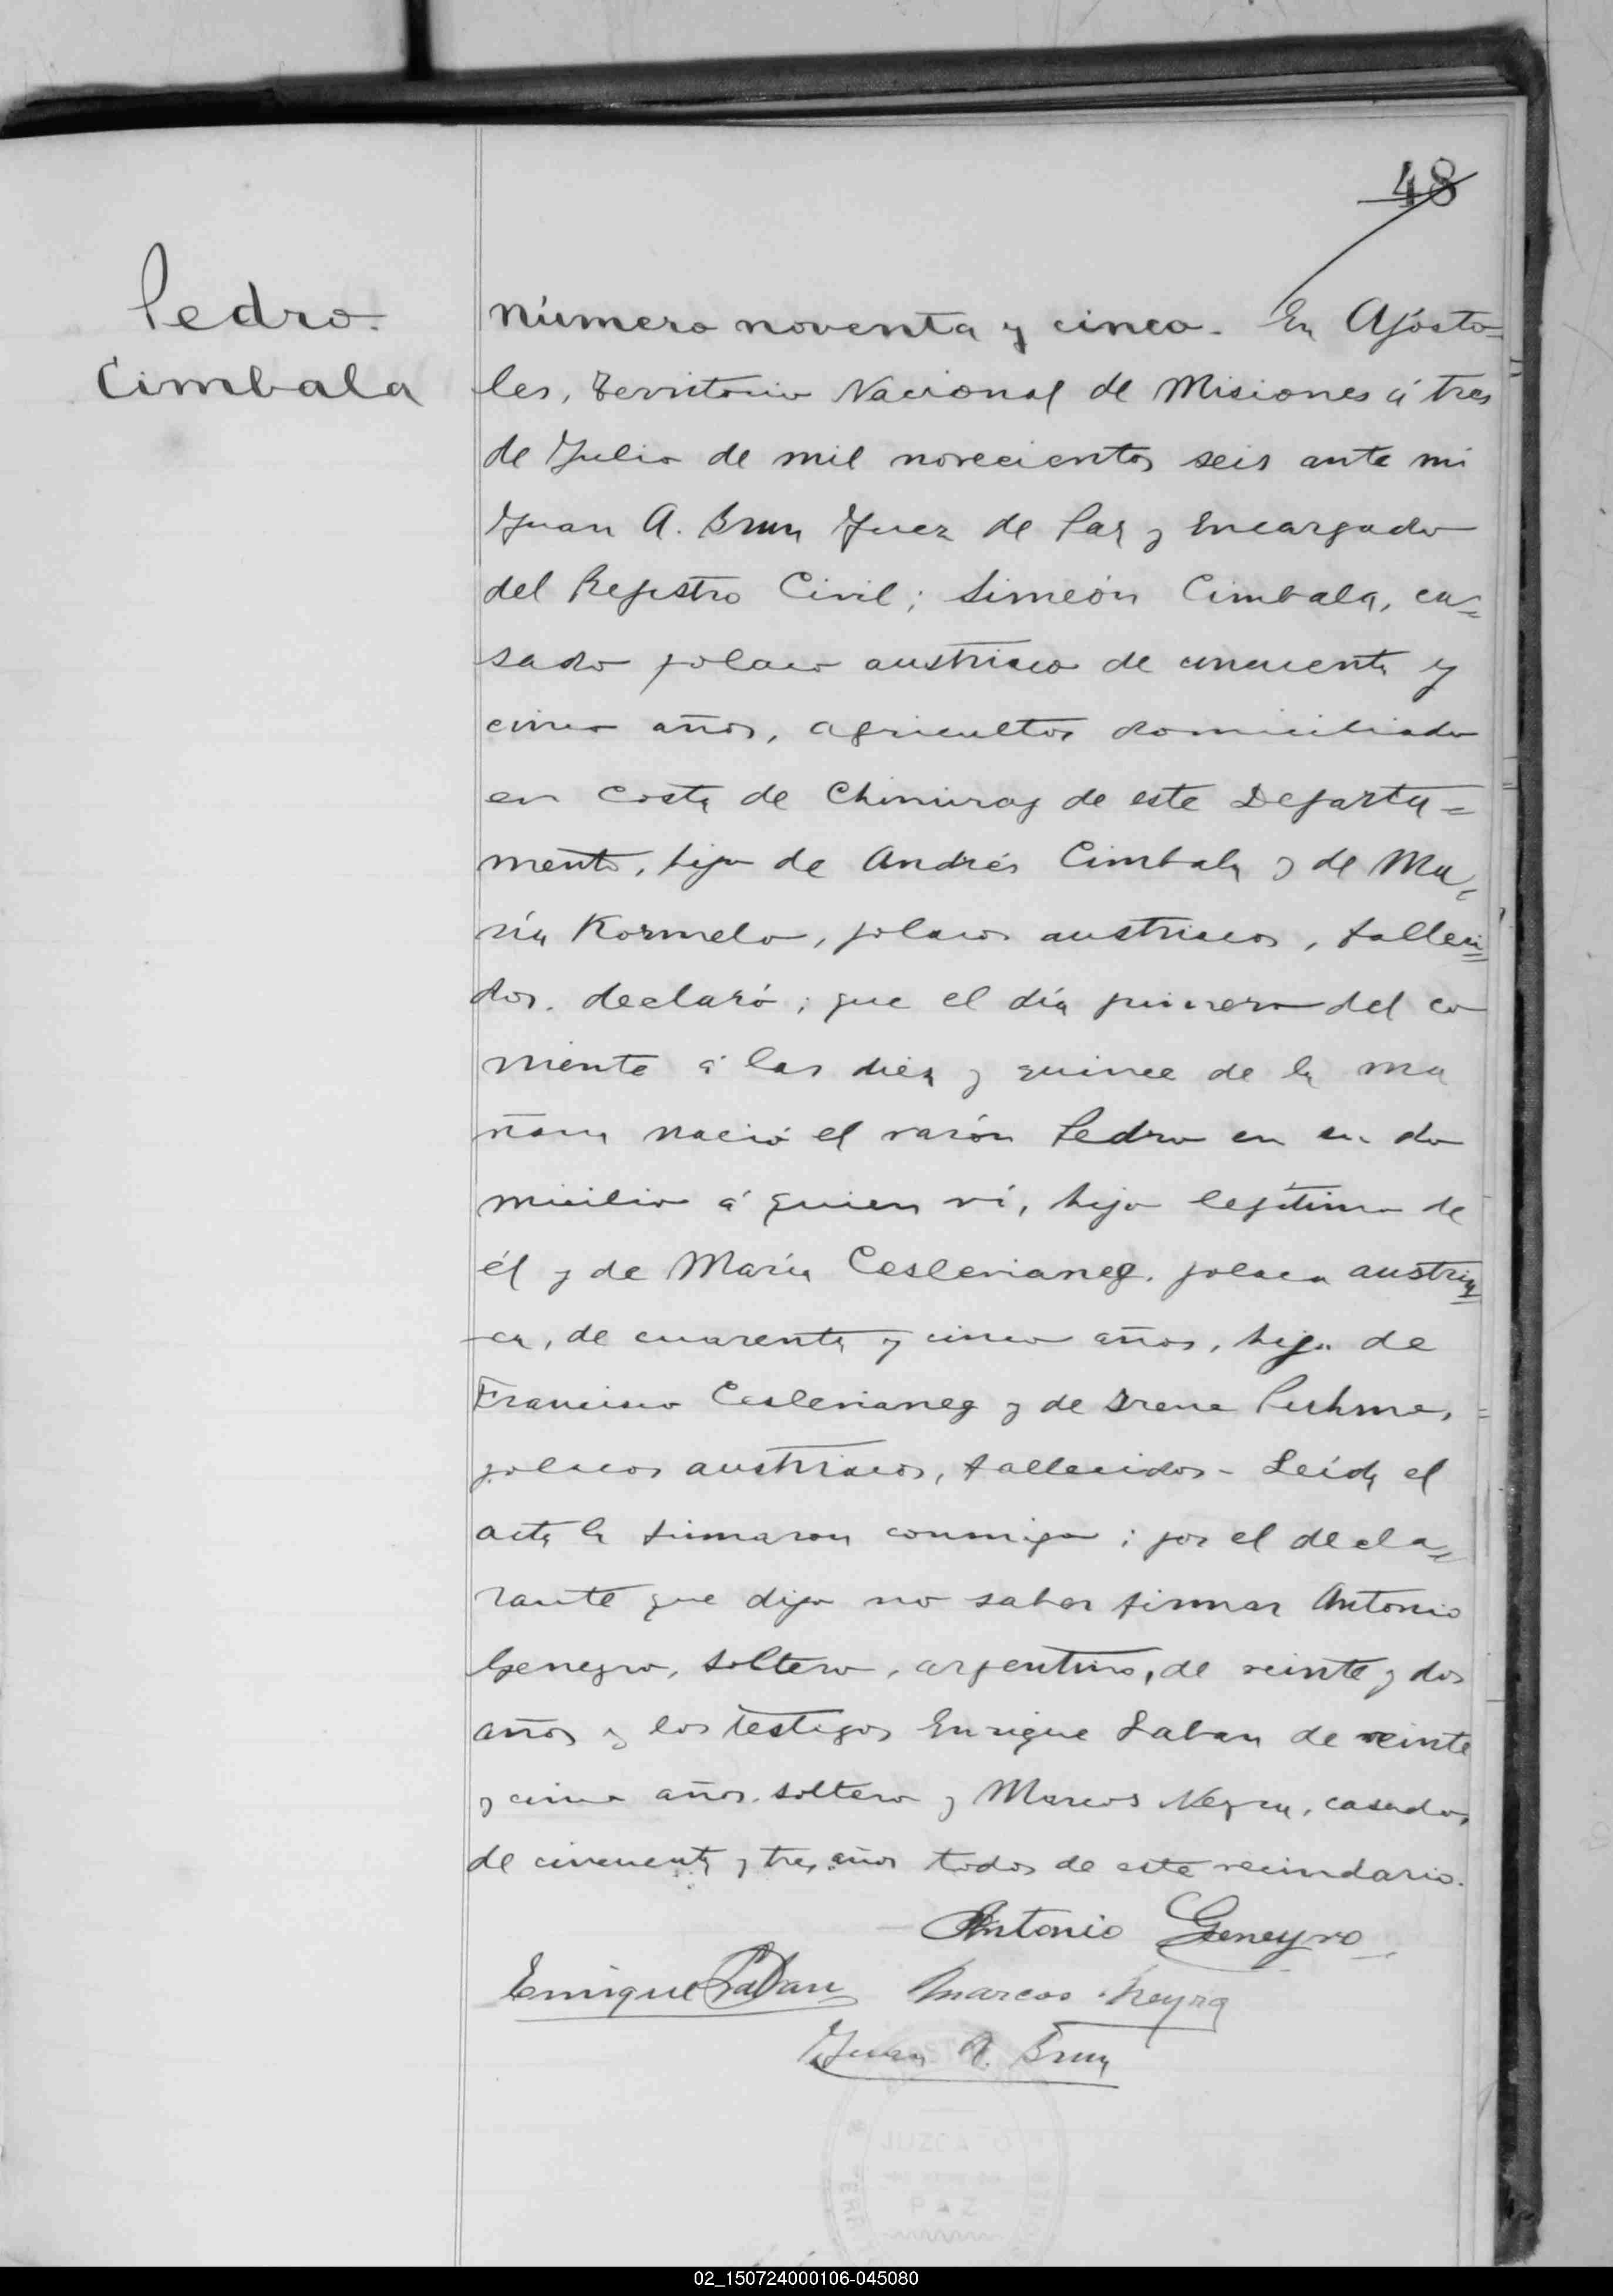 48
Pedro
Cimbala
Número noventa y cinco. En Aposto-
les, Territorio Nacional de Misiones á tres
de Julio de mil novecientos seis ante mi
Juan A. Brun Juez de Paz y Encargado
del Registro Civil; Simeón Cimbala, ca=
sado polaco austriaco de cincuenta y
cinco años, agricultor domiciliado
en Costa de Chimiray de este Departa=
mento, hijo de Andrés Cimbala y de Ma=
ría Kormelo, polacos austriacos, falleci=
dos. declaró; que el día primero del co
rriente á las diez y quince de la ma
ñana nació el varón Pedro en su do
micilio á quien ví, hijo legítimo de
él y de María Ceslerianeg, polaca austria=
ca, de cuarenta y cinco años, hija de
Francisco Ceslerianeg y de Irene
polacos austriacos, fallecidos - Leída el
acta la firmaron conmigo; por el decla=
rante que dijo no saber firmar Antonio
Geneyro, soltero, argentino, de veinte y dos
años y los testigos Enrique Laban de veinte
y cinco años soltero y Marcos Neyra, casado,
de cincuenta y tres años todos de este vecindario.
Antonio Geneyro
Enrique Laban Marcos Neyra
Juan A. Brun
JUZGADO
PAZ
02_150724000106-045080